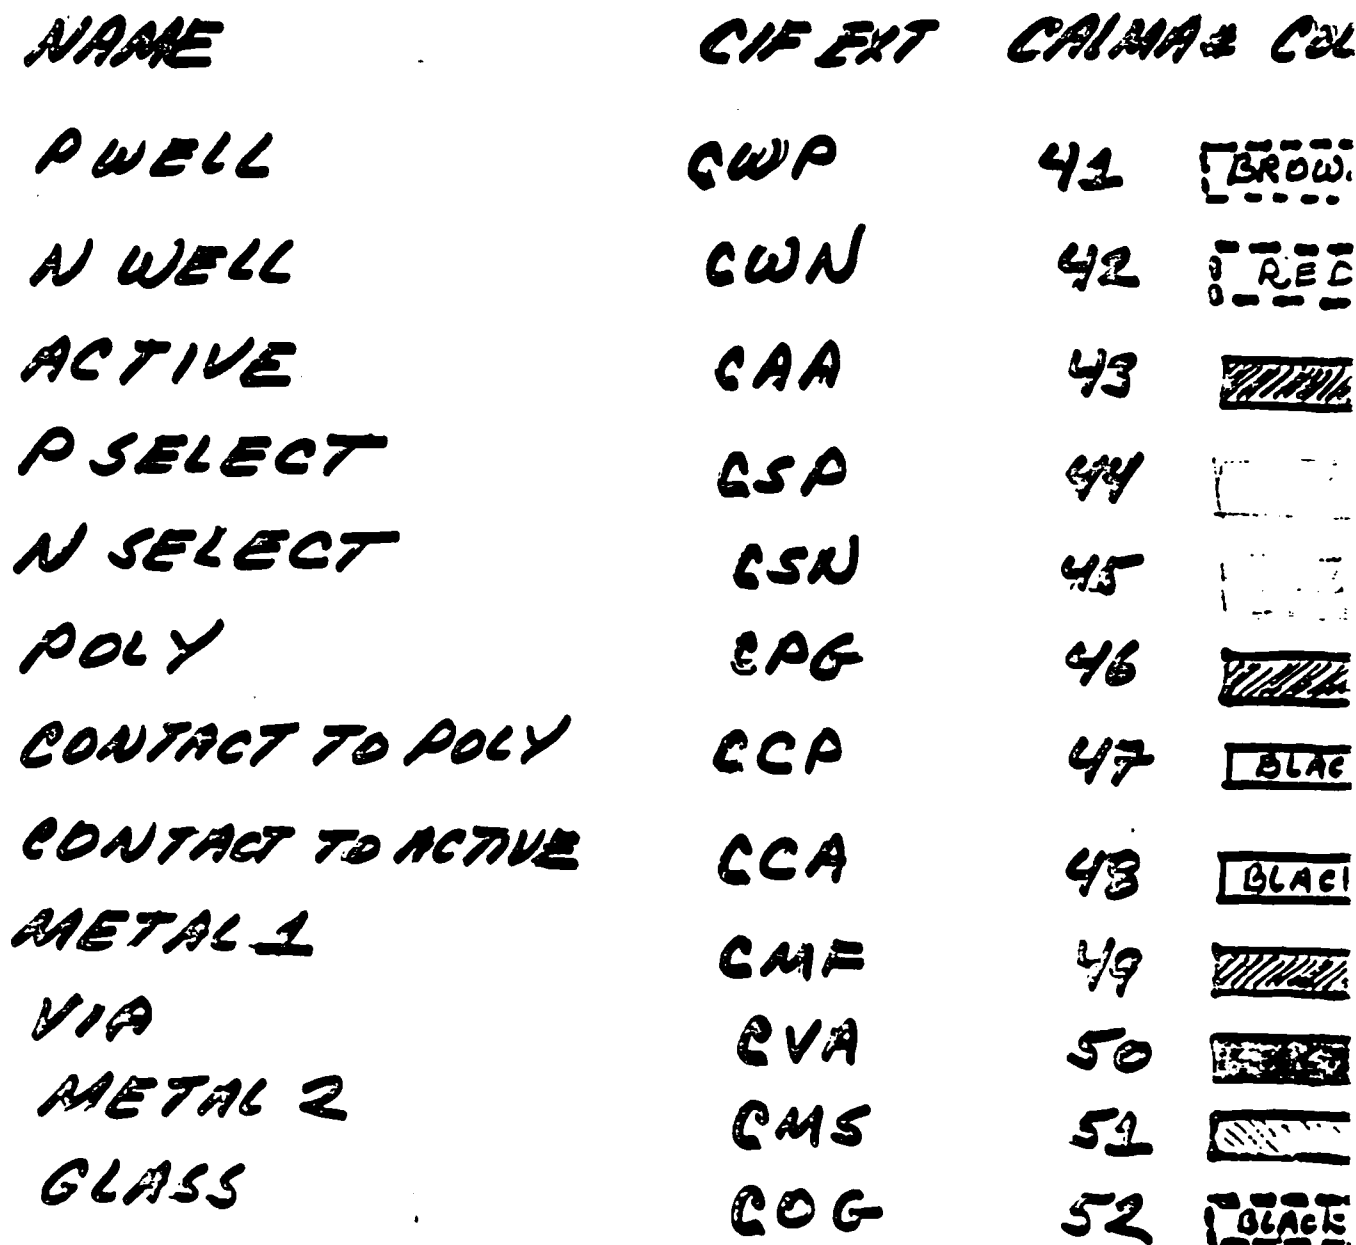 NAME CIF EXT CALMA# COL
P WELL CWP 41 BROW
N WELL CWN 42 RED
ACTIVE CAA 43
P SELECT CSP 44
N SELECT CSN 45
POLY CPG 46
CONTACT TO POLY CCP 47 BLAC
CONTACT TO ACTIVE CCA 48 BLACK
METAL 1 CMF 49
VIA CVA 50
METAL 2 CMS 51
GLASS COG 52 BLACK